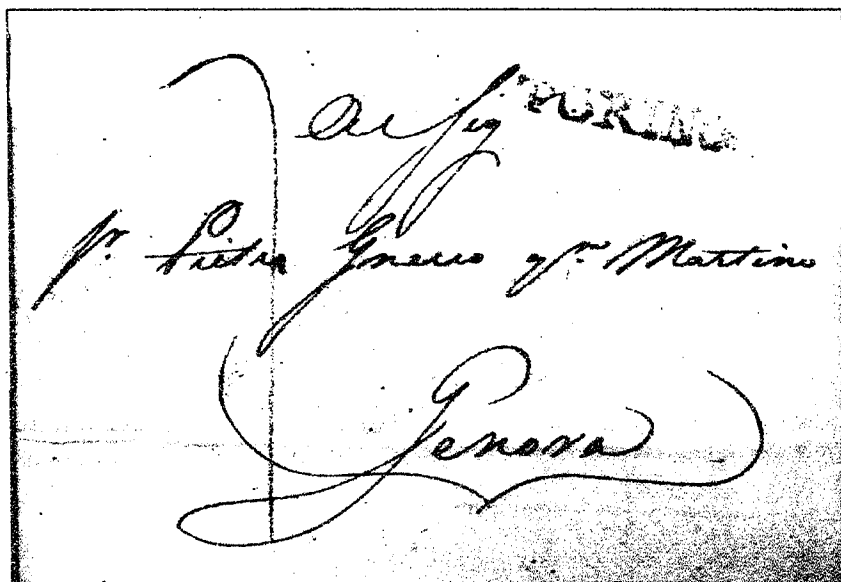 Al Sig
TORINO
Sr. Pietro Gnecco qm. Martino
Genova